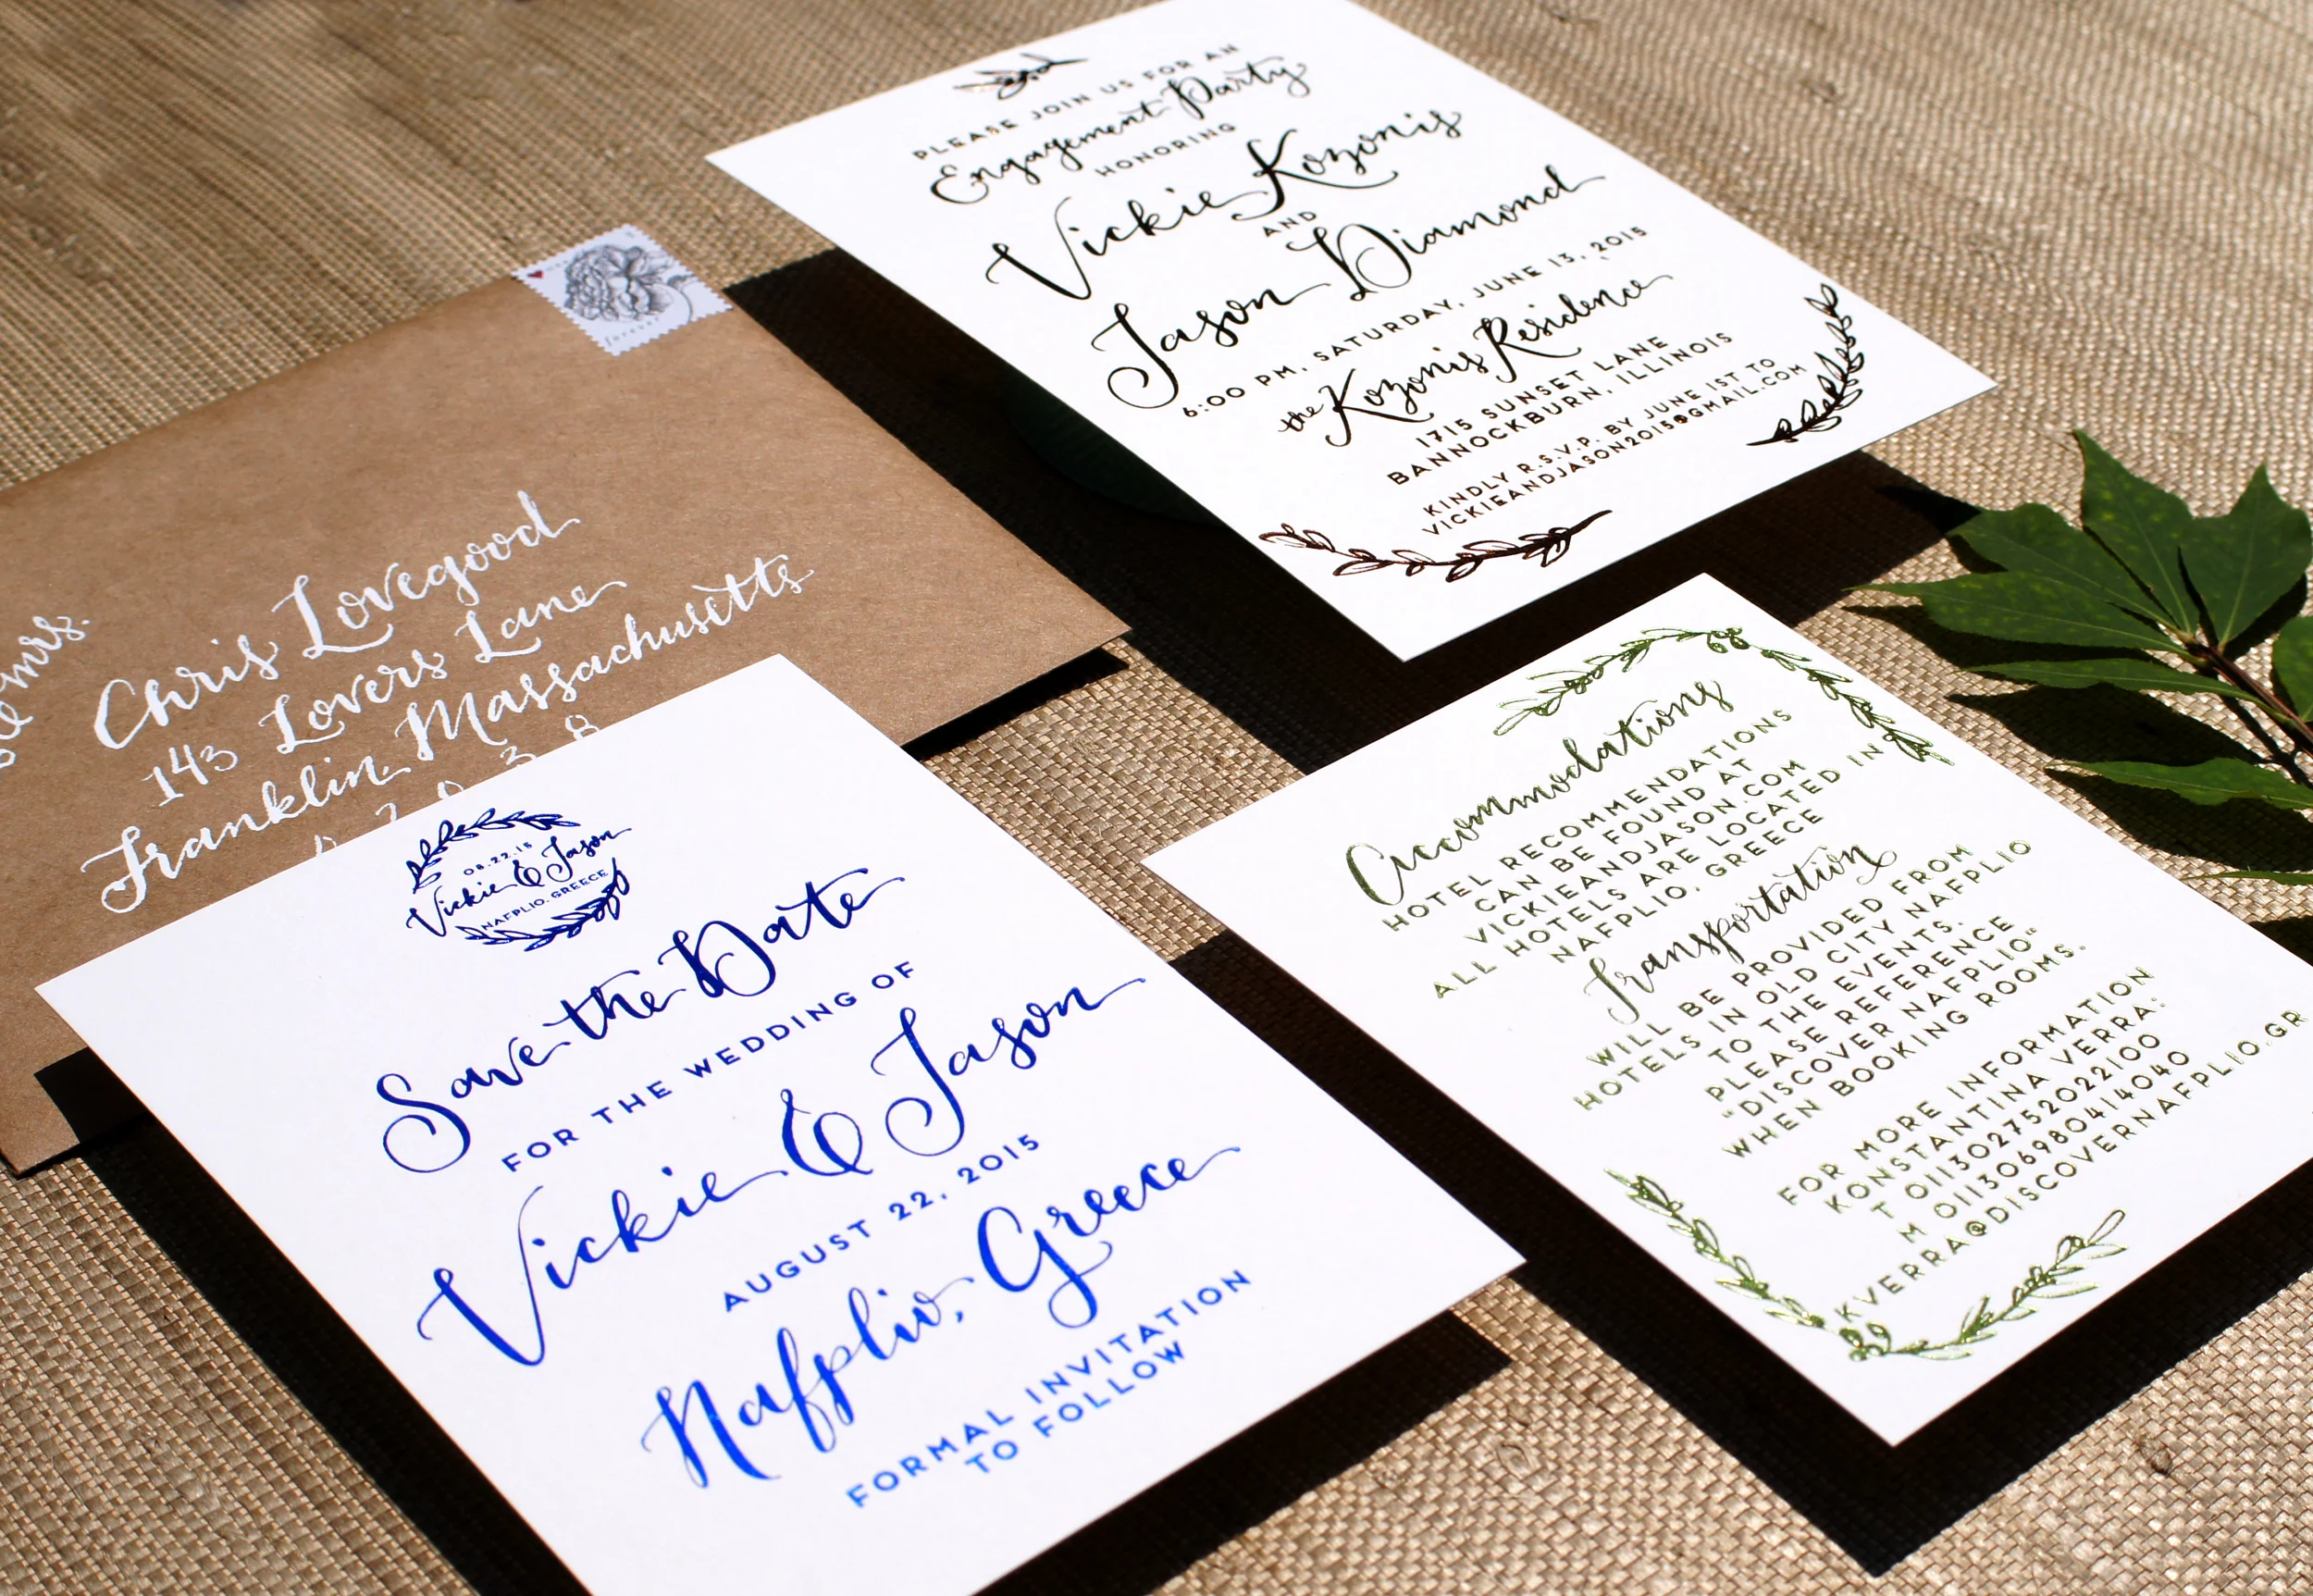 PLEASE JOIN US FOR AN
Engagement Party
HONORING
Vickie Kozonis
AND
Jason Diamond
6:00 PM, SATURDAY, JUNE 13, 2015
the Kozonis Residence
1715 SUNSET LANE
BANNOCKBURN, ILLINOIS
KINDLY R.S.V.P. BY JUNE 1ST TO
VICKIEANDJASON2015@GMAIL.COM
forever
mrs.
Chris Lovegood
143 Lovers Lane
Franklin, Massachusetts
02038
08.22.15
Vickie & Jason
NAFPLIO, GREECE
Save the Date
FOR THE WEDDING OF
Vickie & Jason
AUGUST 22, 2015
Nafplio, Greece
FORMAL INVITATION
TO FOLLOW
Accommodations
HOTEL RECOMMENDATIONS
CAN BE FOUND AT
VICKIEANDJASON.COM
ALL HOTELS ARE LOCATED IN
NAFPLIO, GREECE
Transportation
WILL BE PROVIDED FROM
HOTELS IN OLD CITY NAFPLIO
TO THE EVENTS.
PLEASE REFERENCE
"DISCOVER NAFPLIO"
WHEN BOOKING ROOMS.
FOR MORE INFORMATION
KONSTANTINA VERRA:
T 011302752022100
M 011306980414040
KVERRA@DISCOVERNAFPLIO.GR